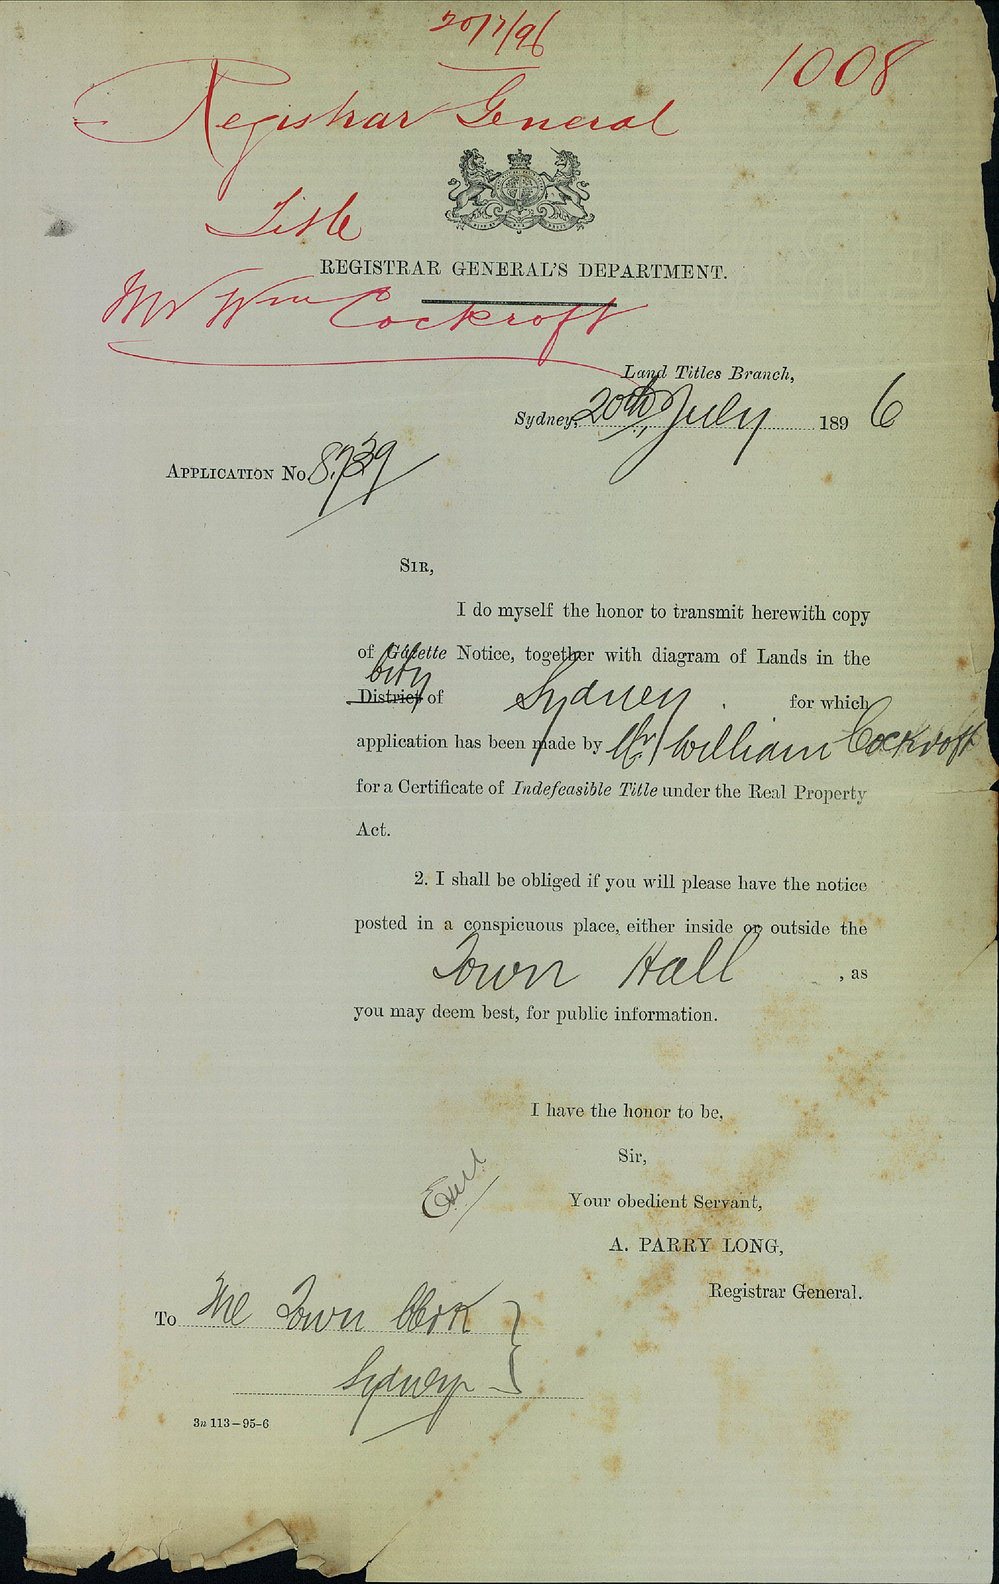 20/7/96
1008
Registrar General
Title
REGISTRAR GENERAL'S DEPARTMENT.
Mr Wm Cockroft
Land Titles Branch,
Sydney, 20th July 1896
APPLICATION No. 8739
SIR,
I do myself the honor to transmit herewith copy
of Gazette Notice, together with diagram of Lands in the
City
District of Sydney. for which
application has been made by Mr William Cockroft
for a Certificate of Indefeasible Title under the Real Property
Act.
2. I shall be obliged if you will please have the notice
posted in a conspicuous place, either inside or outside the
Town Hall, as
you may deem best, for public information.
I have the honor to be,
Sir,
Your obedient Servant,
A. PARRY LONG,
Registrar General.
To The Town Clerk
Sydney
3n 113–95–6